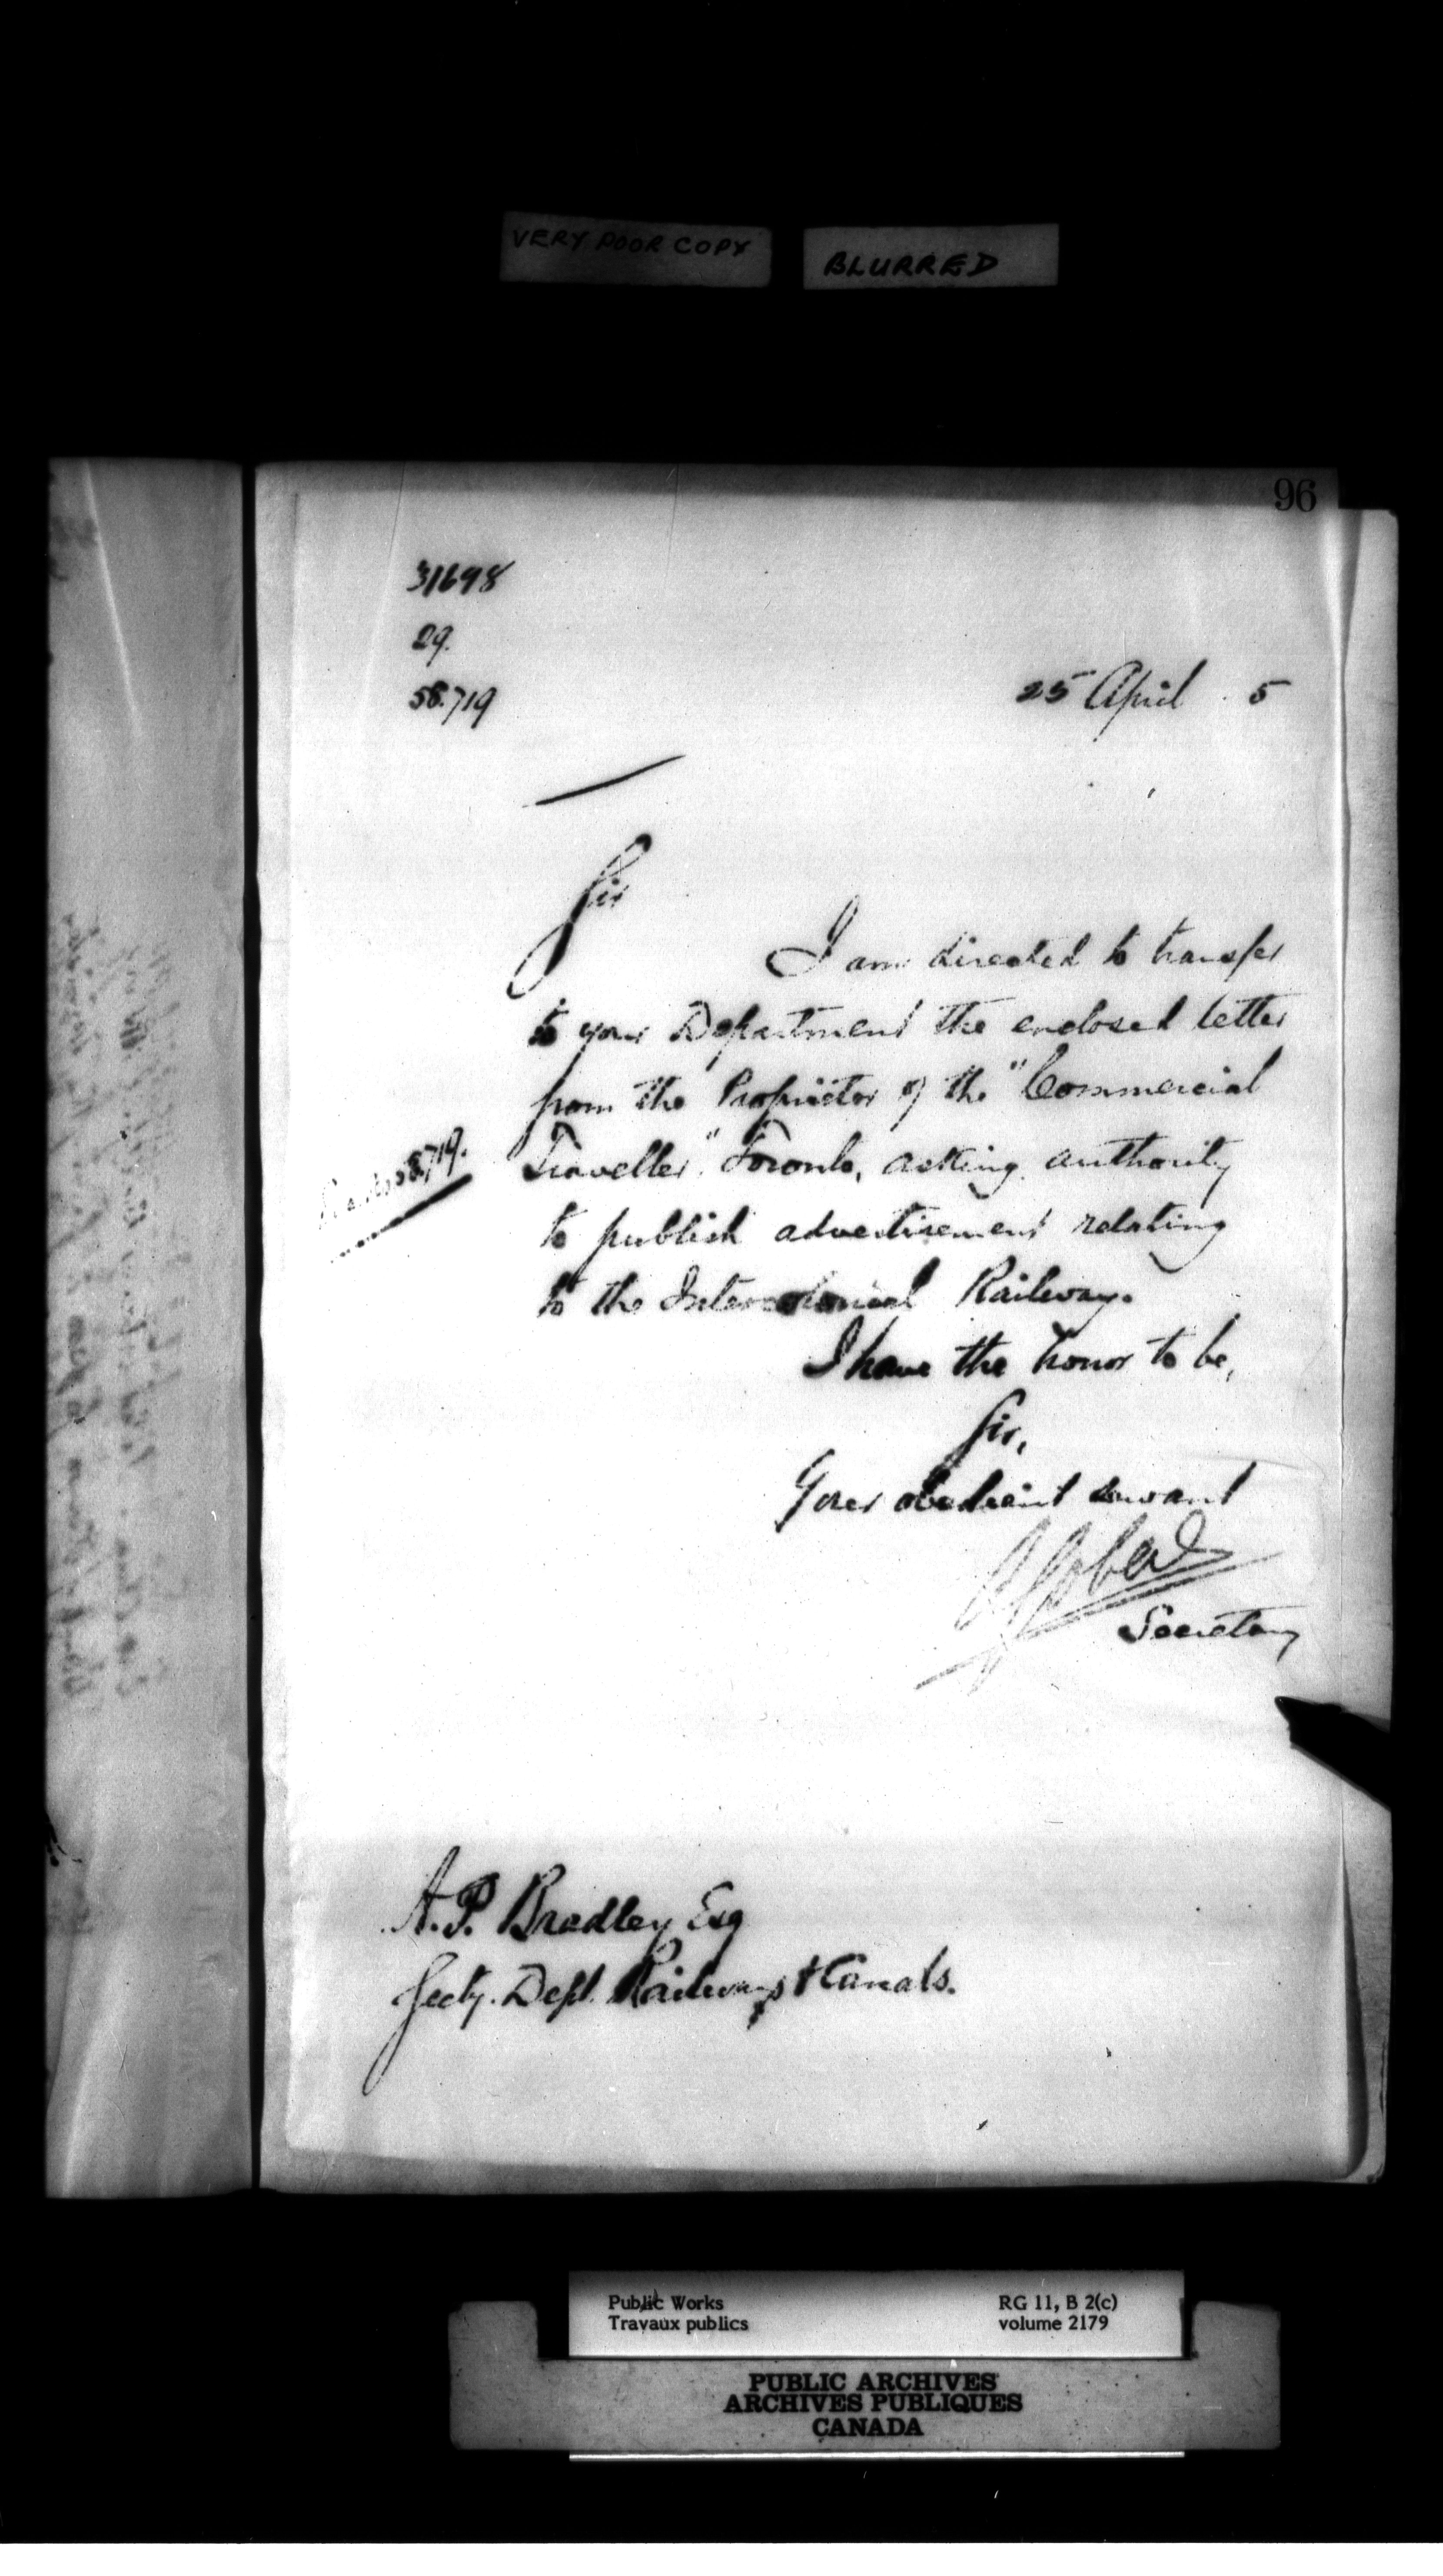 VERY POOR COPY
BLURRED
96
31698
29.
58.719
25 April 5
Sir
I am directed to transfer
to your Department the enclosed letter
from the Proprietor of the "Commercial
58.719.
Traveller" Toronto, asking authority
to publish advertisement relating
to the Intercolonial Railway.
I have the honor to be,
Sir,
Your obedient servant
Secretary
A. P. Bradley Esq
Secty. Dept. Railways & Canals.
Public Works
Travaux publics
RG 11, B 2(c)
volume 2179
PUBLIC ARCHIVES
ARCHIVES PUBLIQUES
CANADA